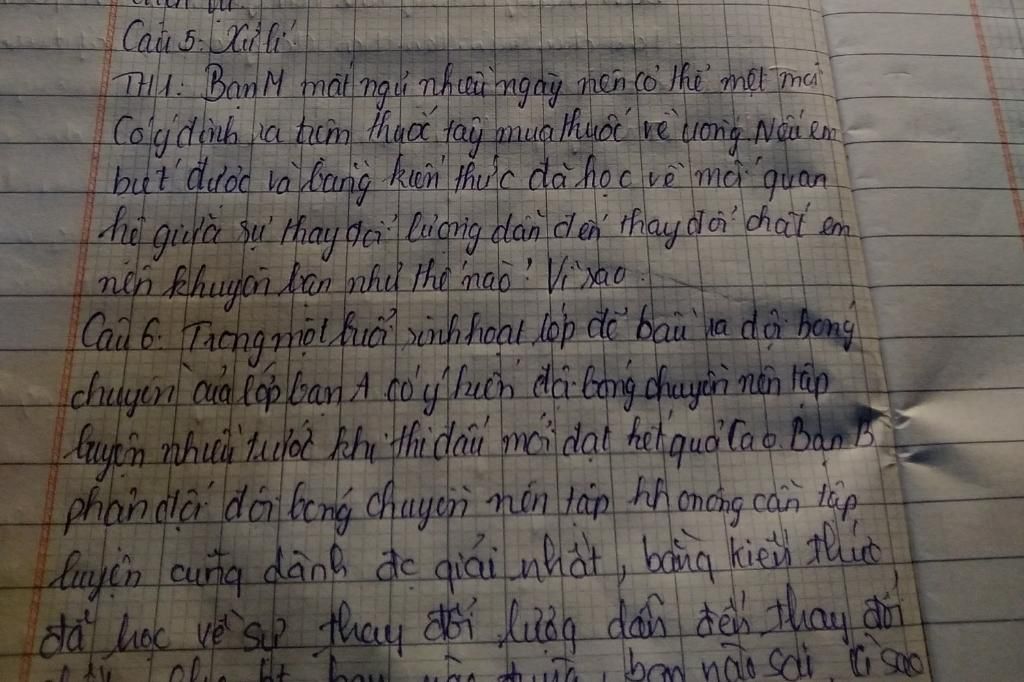 Câu 5: Xử lí
TH1: Bạn M mất ngủ nhiều ngày nên cơ thể mệt mỏi
Có ý định ra tiệm thuốc tây mua thuốc về uống. Nếu em
biết được và bằng kiến thức đã học về mối quan
hệ giữa sự thay đổi lượng dẫn đến thay đổi chất em
nên khuyên bạn như thế nào? Vì sao.
Câu 6: Trong một buổi sinh hoạt lớp để bầu ra đội bóng
chuyền của lớp bạn A có ý kiến đội bóng chuyền nên tập
luyện nhiều trước khi thi đấu mới đạt kết quả cao. Bạn B
phản đối đội bóng chuyền nên tập không cần tập
luyện cũng dành đc giải nhất, bằng kiến thức
đã học về sự thay đổi lượng dẫn đến thay đổi
bạn nào sai. Vì sao